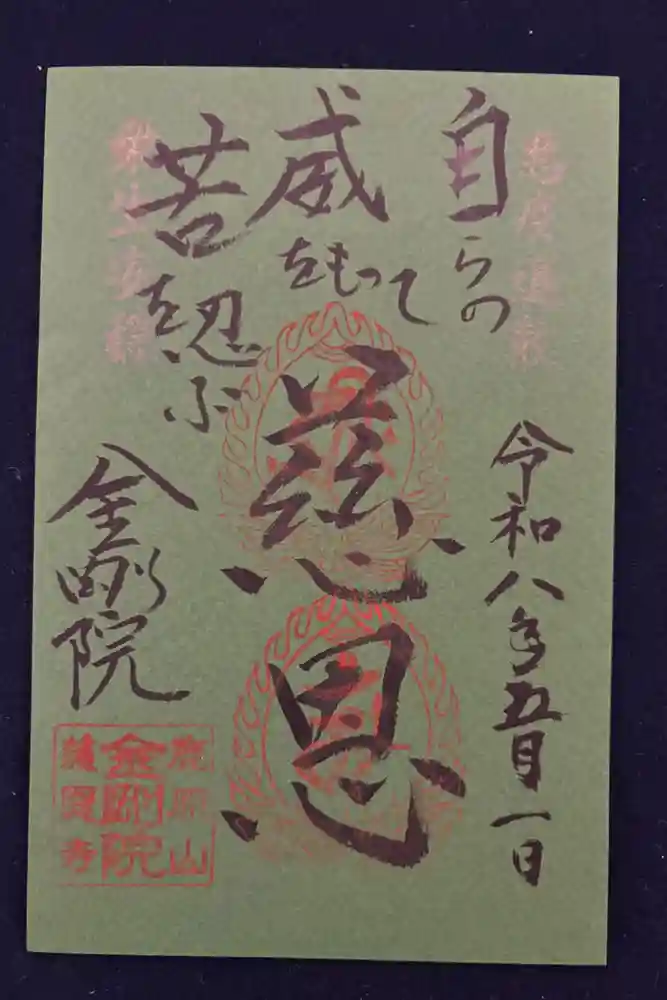 自らの
威をもって
苦を忍ぶ
慈恩
令和八年五月一日
金剛院
鹿原山
金剛院
慈恩寺